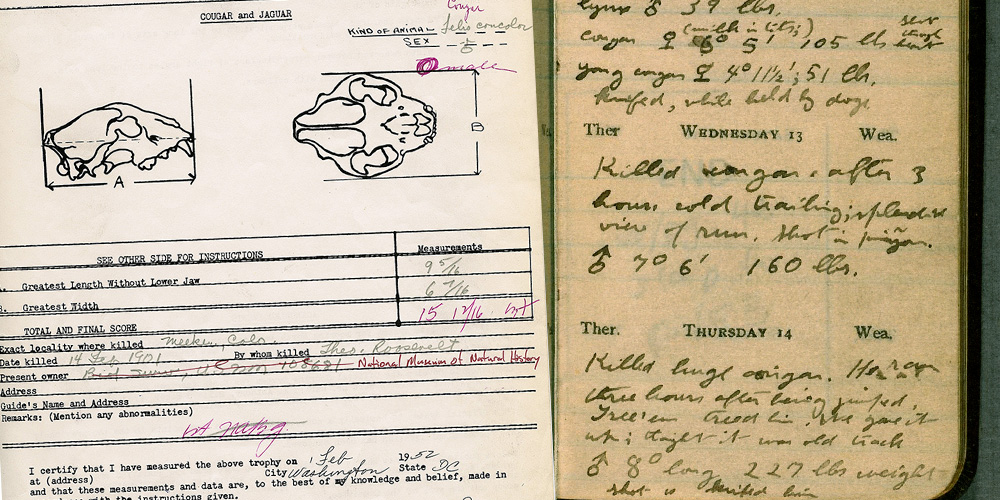 COUGAR and JAGUAR
Cougar
KIND OF ANIMAL Felis concolor
SEX ♂
male
A
B
SEE OTHER SIDE FOR INSTRUCTIONS
Measurements
A. Greatest Length Without Lower Jaw 9 5/16
B. Greatest Width 6 7/16
TOTAL AND FINAL SCORE 15 12/16
Exact locality where killed Meeker, Colo.
Date killed 14 Feb 1901 By whom killed Theo. Roosevelt
Present owner U.S.N.M. National Museum of Natural History
Address
Guide's Name and Address
Remarks: (Mention any abnormalities)
I certify that I have measured the above trophy on 1 Feb 1952
at (address) City Washington State DC
and that these measurements and data are, to the best of my knowledge and belief, made in
the instructions given.
lynx ♂ 39 lbs.
(milk in tits;)
cougar ♀ 6° 5' 105 lbs shot through heart
young cougar ♀ 4° 11½'; 51 lbs.
Knifed, while held by dogs
Ther WEDNESDAY 13 Wea.
Killed cougar after 3
hours cold trailing; splendid
view of run. Shot in piñon.
♂ 7° 6' 160 lbs.
Ther. THURSDAY 14 Wea.
Killed huge cougar. He ran
three hours after being jumped.
Tree'en treed him. We gave it
up; thought it was old track
♂ 8° long 227 lbs weight
shot & knifed him